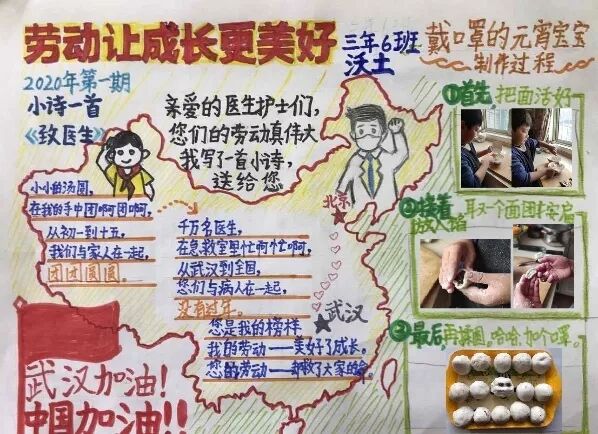 劳动让成长更美好
三年6班
沃土
2020年第一期
小诗一首
《致医生》
亲爱的医生护士们，
您们的劳动真伟大
我写了一首小诗，
送给您
小小的汤圆，
在我的手中团啊团啊，
从初一到十五，
我们与家人在一起，
团团圆圆。
千万名医生，
在急救室里忙啊忙啊，
从武汉到全国，
您们与病人在一起，
没有过年。
您是我的榜样
我的劳动——美好了成长。
您的劳动——拯救了大家的命。
北京
武汉
武汉加油！
中国加油！！
戴口罩的元宵宝宝
制作过程
①首先 把面活好
②接着 取一个面团按扁
放入馅
③最后，再揉圆，哈哈，加个口罩。